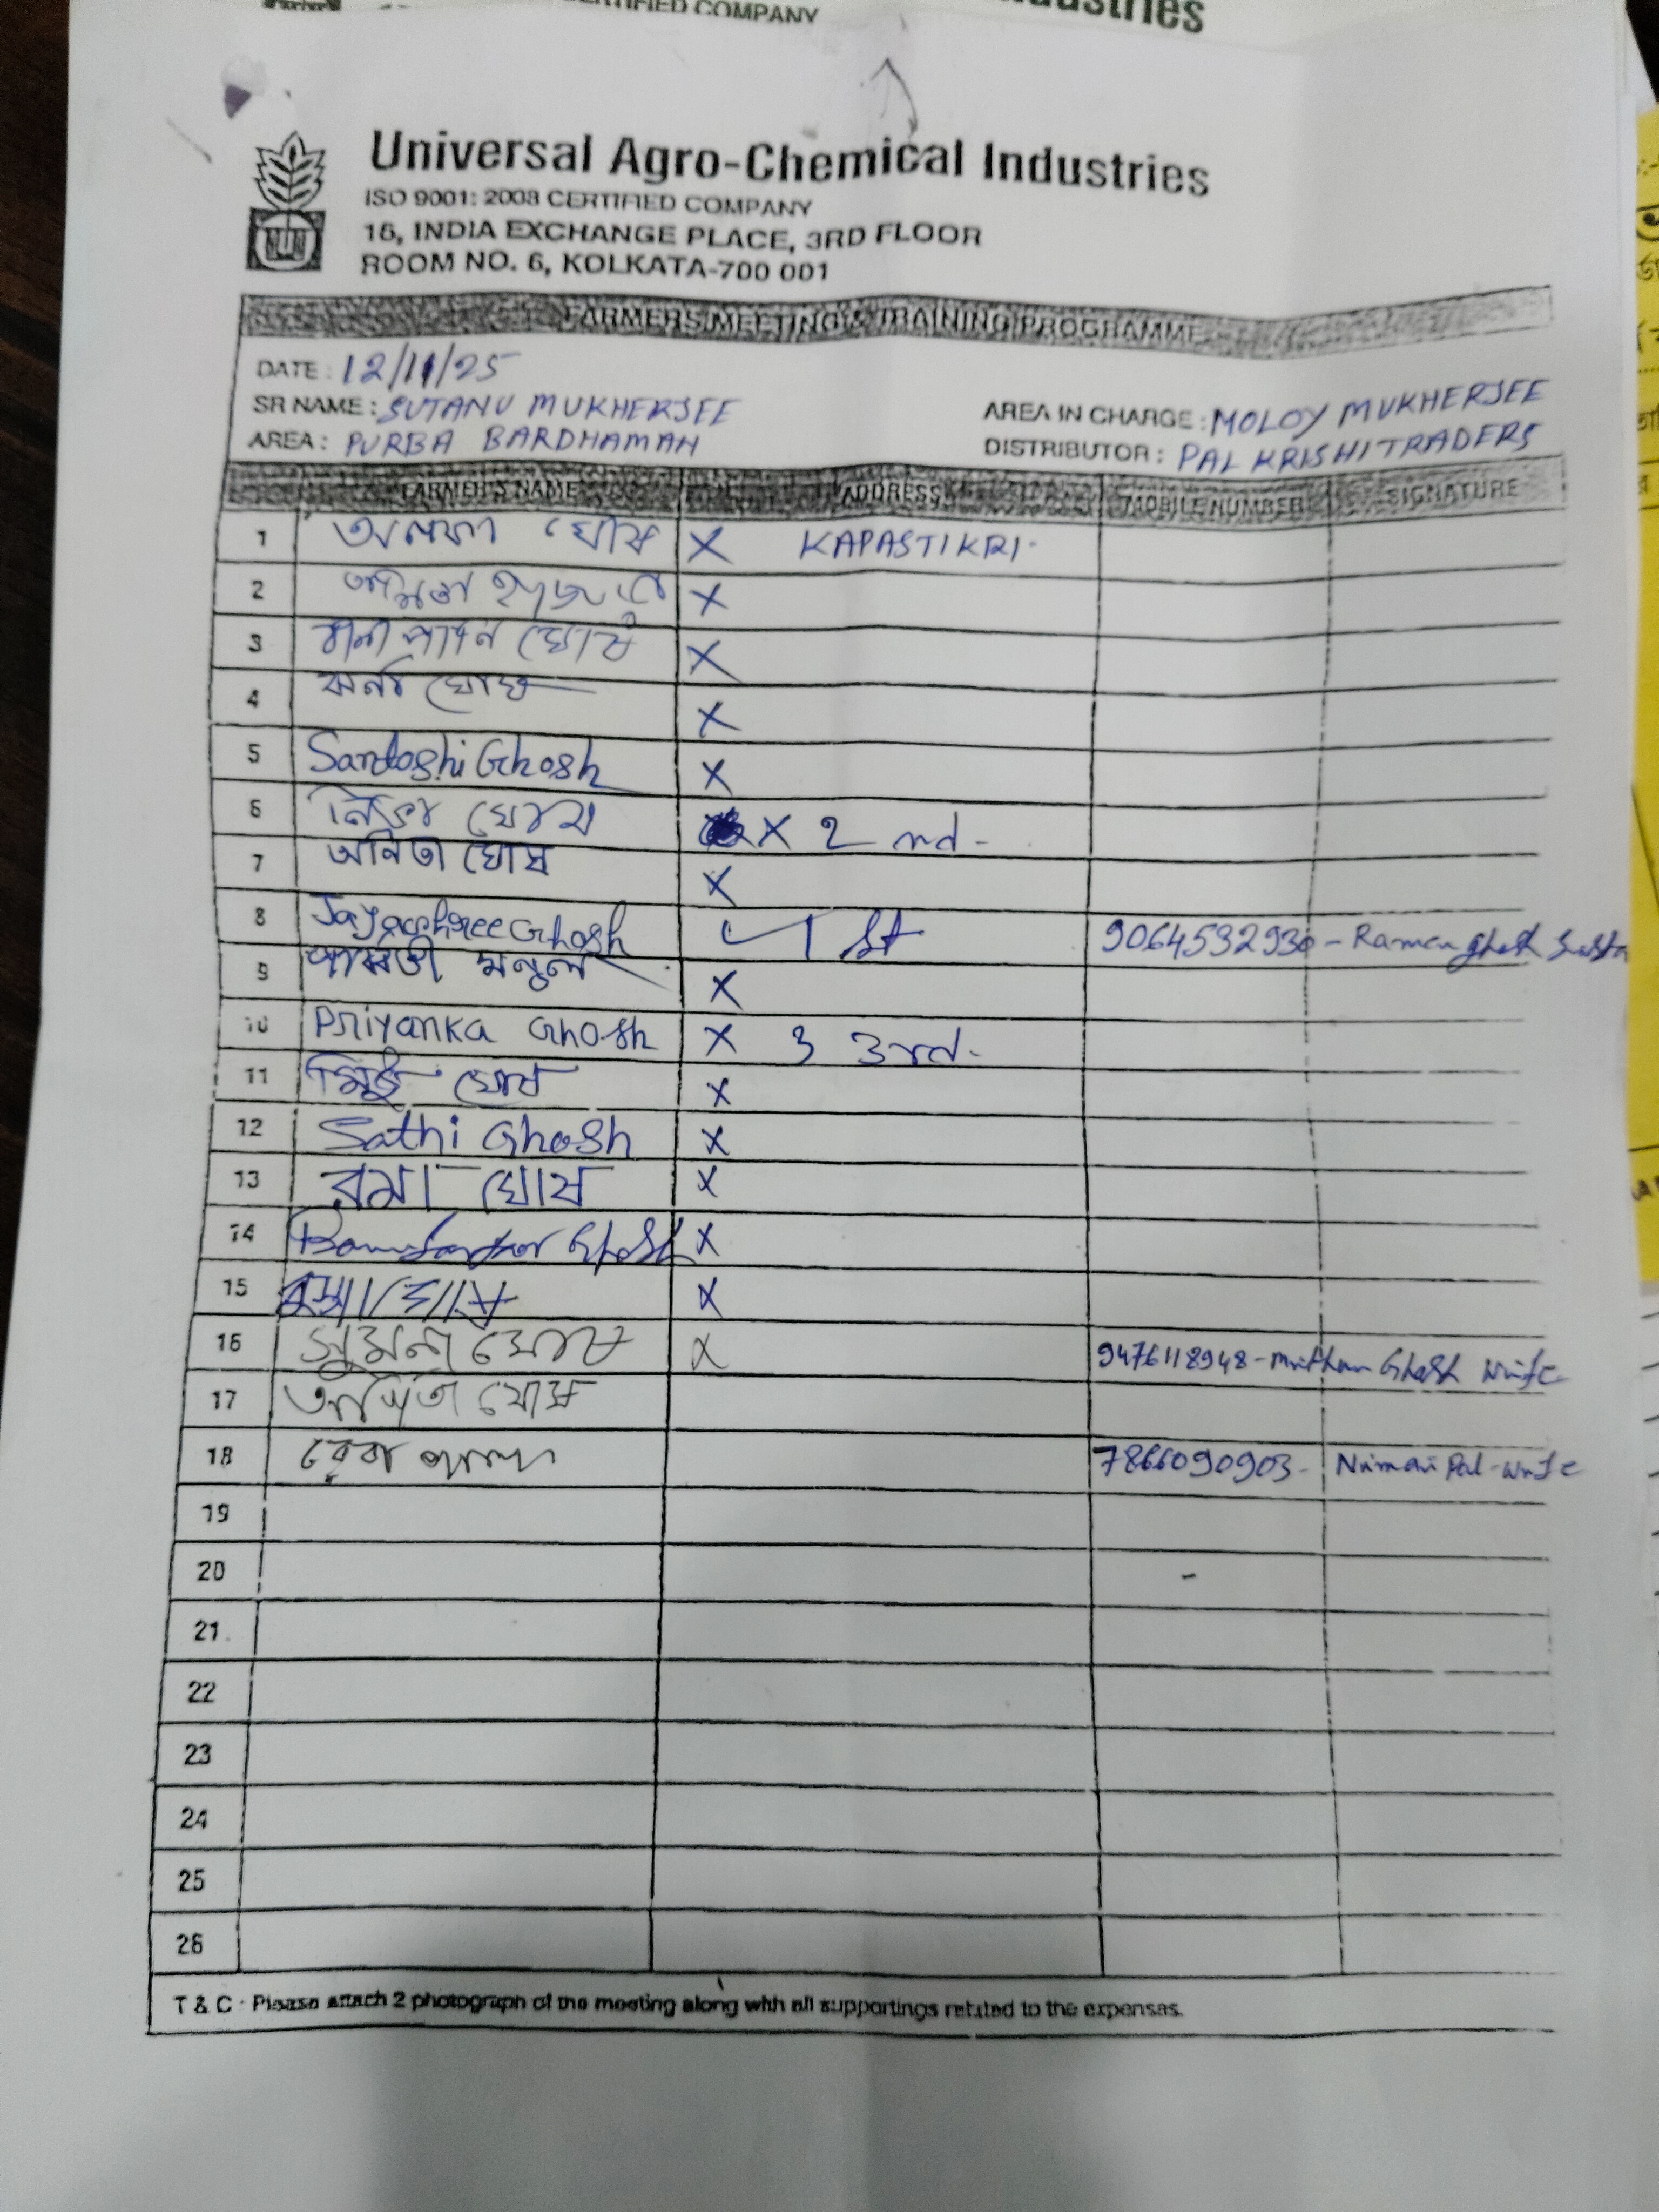 CERTIFIED COMPANY
Universal Agro-Chemical Industries
ISO 9001: 2008 CERTIFIED COMPANY
16, INDIA EXCHANGE PLACE, 3RD FLOOR
ROOM NO. 6, KOLKATA-700 001
FARMERS MEETING & TRAINING PROGRAMME
DATE : 12/11/25
SR NAME : SUTANU MUKHERJEE AREA IN CHARGE : MOLOY MUKHERJEE
AREA : PURBA BARDHAMAN DISTRIBUTOR : PAL KRISHI TRADERS
FARMER'S NAME ADDRESS MOBILE NUMBER SIGNATURE
1 অলকা ঘোষ X KAPASTIKRI
2 X
3 ঘোষ X
4 ঘোষ X
5 Santoshi Ghosh X
6 নিভা ঘোষ X 2 nd
7 অনিতা ঘোষ X
8 Jayashree Ghosh 1 st 9064532930 - Raman Ghosh
9 পার্বতী মন্ডল X
10 Priyanka Ghosh X 3 3rd
11 মিঠু ঘোষ X
12 Sathi Ghosh X
13 রমা ঘোষ X
14 Ghosh X
15 ঘোষ X
16 ঘোষ X 9476118948 - Mithun Ghosh Wife
17 ঘোষ
18 রেবা পাল 7866090903 - Nimai Pal - Wife
19
20
21
22
23
24
25
26
T & C - Please attach 2 photograph of the meeting along with all supportings related to the expenses.